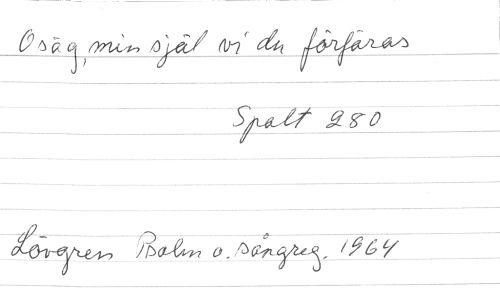 O säg, min själ vi du förfäras
Spalt 280
Lövgren Psalm o. sångreg. 1964